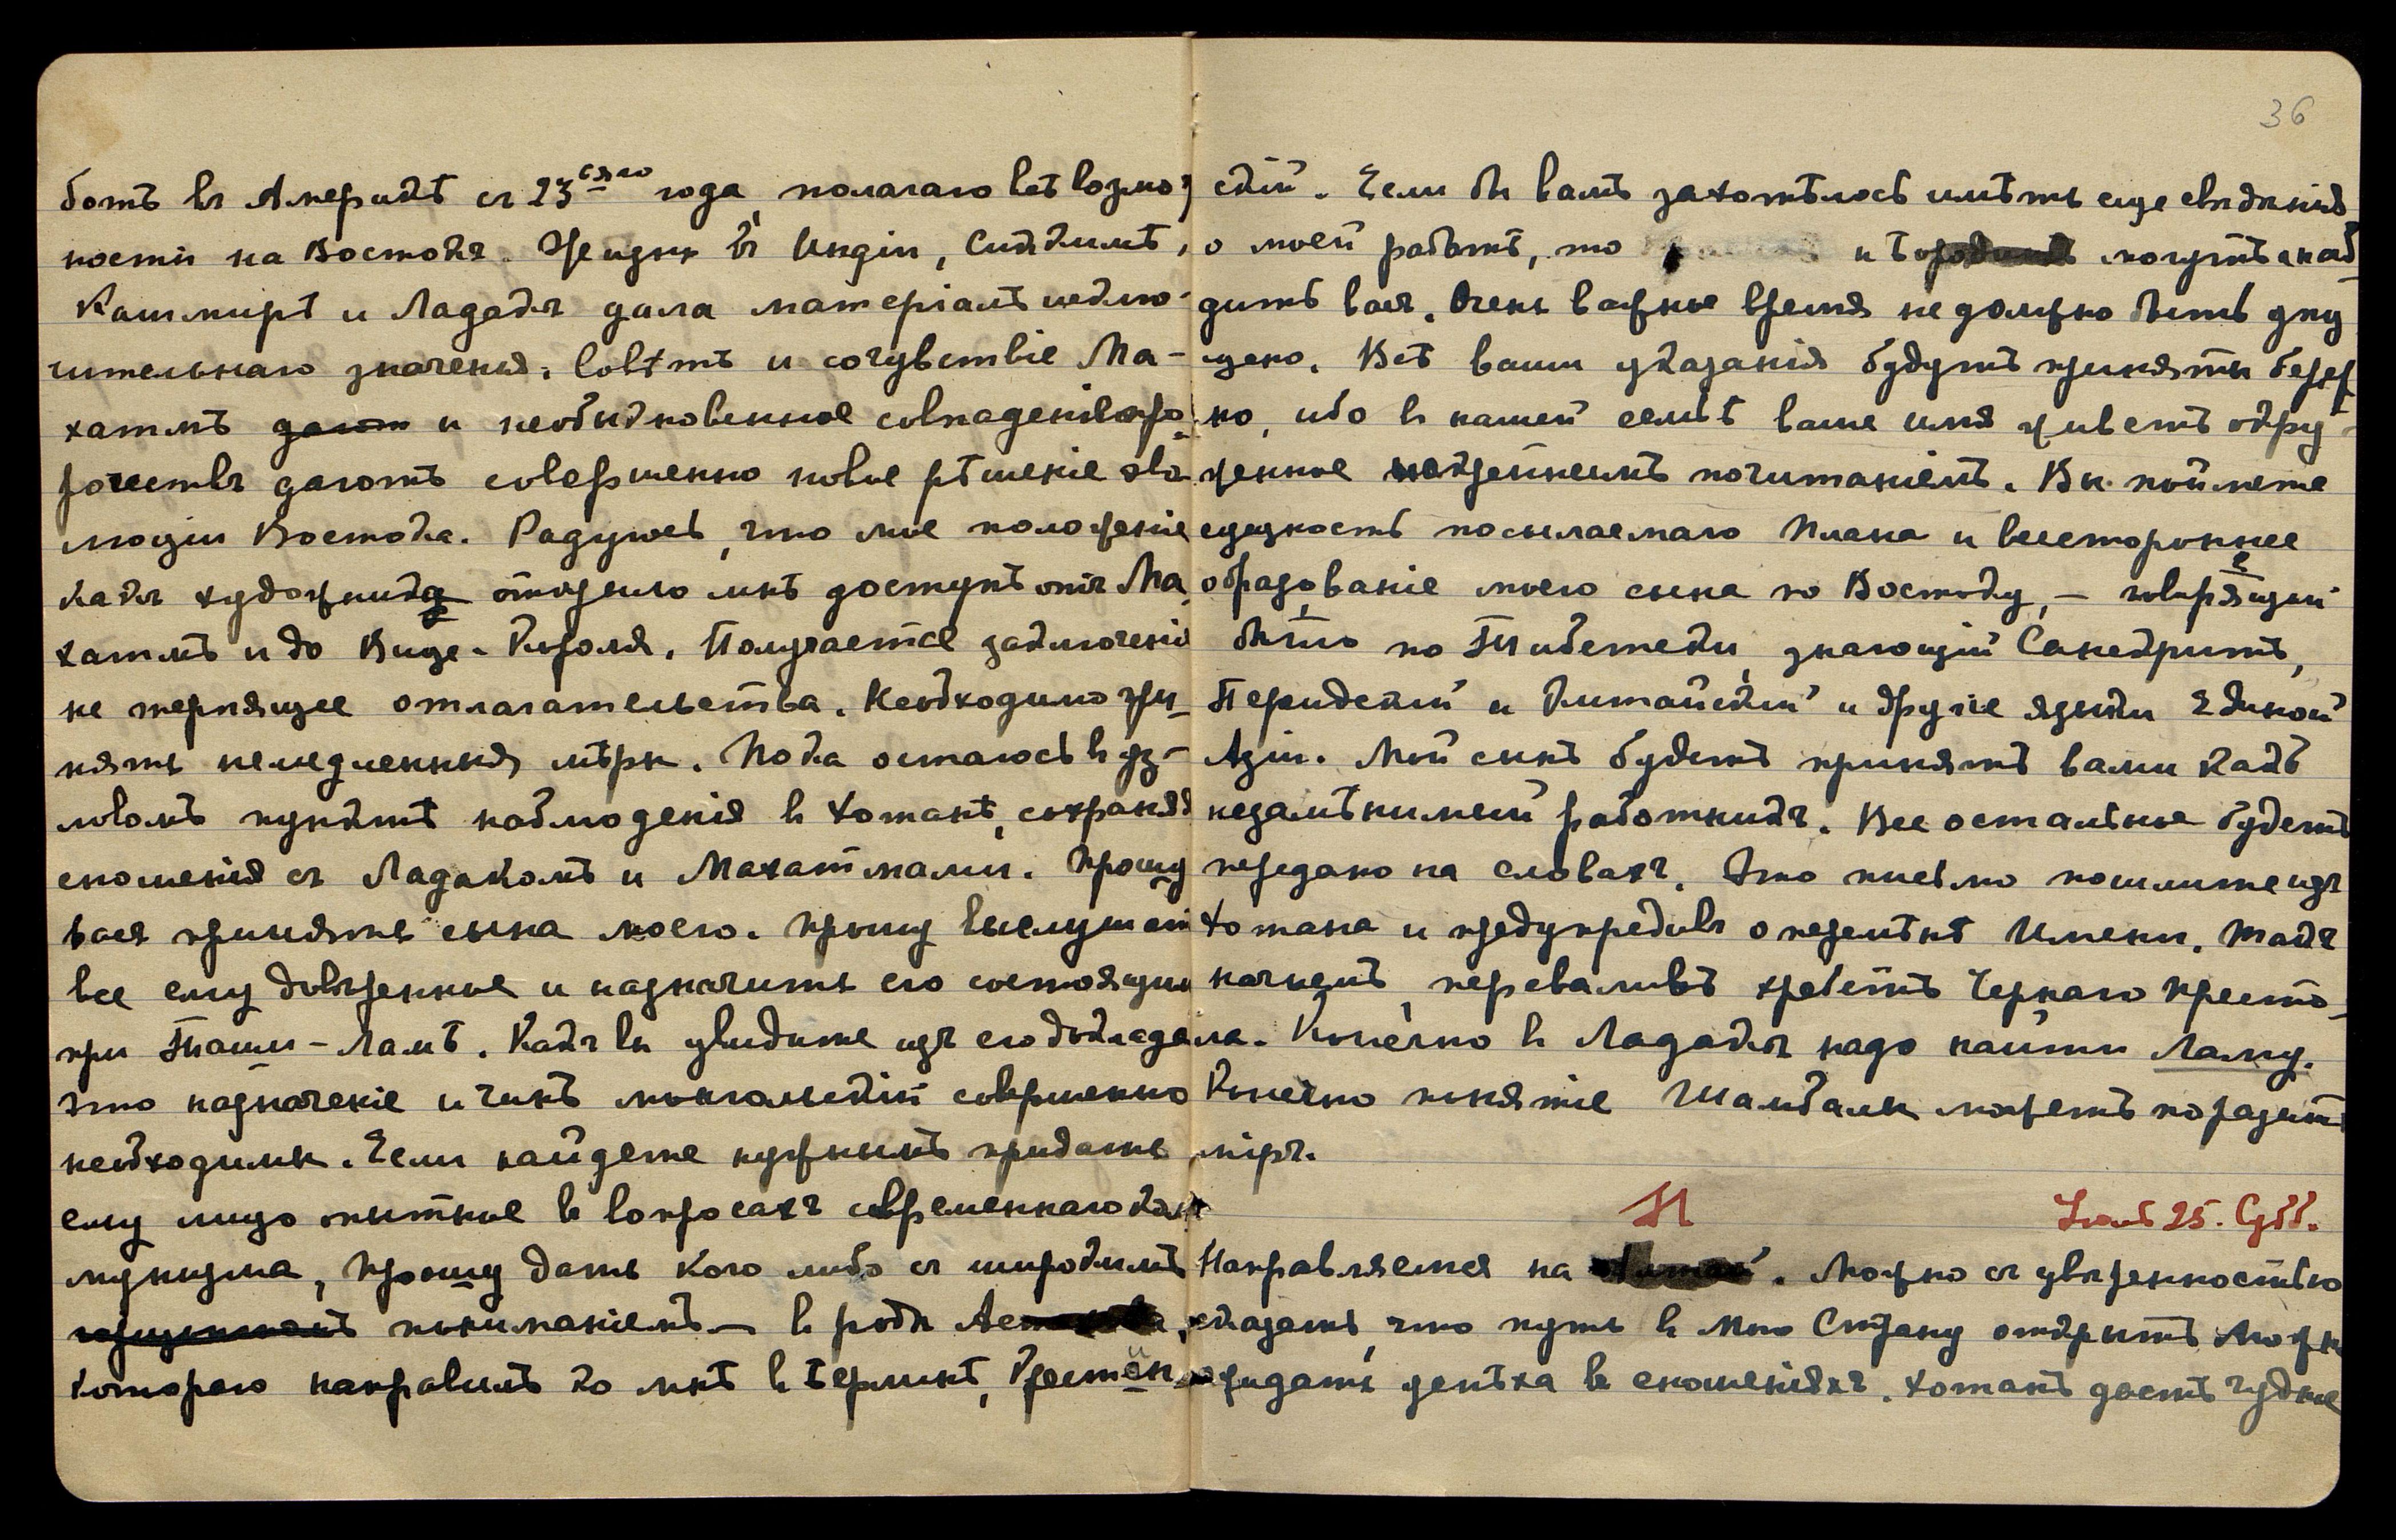 ботѣ въ Америкѣ съ 23 года, полагаю всѣ возмож
ности на Востокѣ. Жизнь въ Индіи, Сиккимѣ,
Кашмирѣ и Ладакѣ дала матеріалъ исклю-
чительнаго значенія. Совѣтъ и сочувствіе Ма-
хатмъ дают и необыкновенное совпаденіе про
рочествъ даютъ совершенно новое рѣшеніе эво
люціи Востока. Радуюсь, что мое положеніе
какъ художника открыло мнѣ доступъ отъ Ма
хатмъ и до Вице-Короля. Получается заключеніе
не терпящее отлагательства. Необходимо при-
нять немедленныя мѣры. Пока остаюсь въ уз-
ловомъ пунктѣ наблюденія въ Хотанѣ, сохраняя
сношенія съ Ладакомъ и Махатмами. Прошу
васъ принять сына моего. Прошу выслушать
все ему довѣренное и назначить его состоящим
при Таши-Ламѣ. Какъ вы увидите изъ его доклада
это назначеніе и чинъ монгольскій совершенно
необходимы. Если найдете нужнымъ придать
ему лицо опытное въ вопросахъ современнаго ком
мунизма, прошу дать кого либо съ широкимъ
пониманіемъ — въ родѣ
котораго направимъ ко мнѣ въ
36
скій. Если бы вамъ захотѣлось имѣть еще свѣдѣнія
о моей работѣ, то и могутъ снаб
дить васъ. Очень важное время не должно быть упу
щено. Всѣ ваши указанія будутъ приняты береж
но, ибо въ нашей семьѣ ваше имя живетъ окру-
женное почитаніемъ. Вы поймете
сущность посылаемаго Плана и всестороннее
образованіе моего сына по Востоку, — говорящій
бѣгло по Тибетски, знающій Санскритъ,
Персидскій и Китайскій и другіе языки Единой
Азіи. Мой сынъ будетъ принятъ вами какъ
незамѣнимый работникъ. Все остальное будетъ
передано на словахъ. Это письмо пошлите изъ
Хотана и предупредивъ о перемѣнѣ Имени. Такъ
начнемъ, переваливъ хребетъ Чернаго Престо-
ла. Конечно въ Ладакѣ надо найти Ламу.
Конечно понятіе Шамбалы можетъ поразить
міръ.
Н Іюль 25. Субб.
Направляемся на . Можно съ увѣренностью
сказать, что путь въ Мою Страну открытъ. Можно
ожидать успѣха въ сношеніяхъ. Хотанъ дастъ чудные